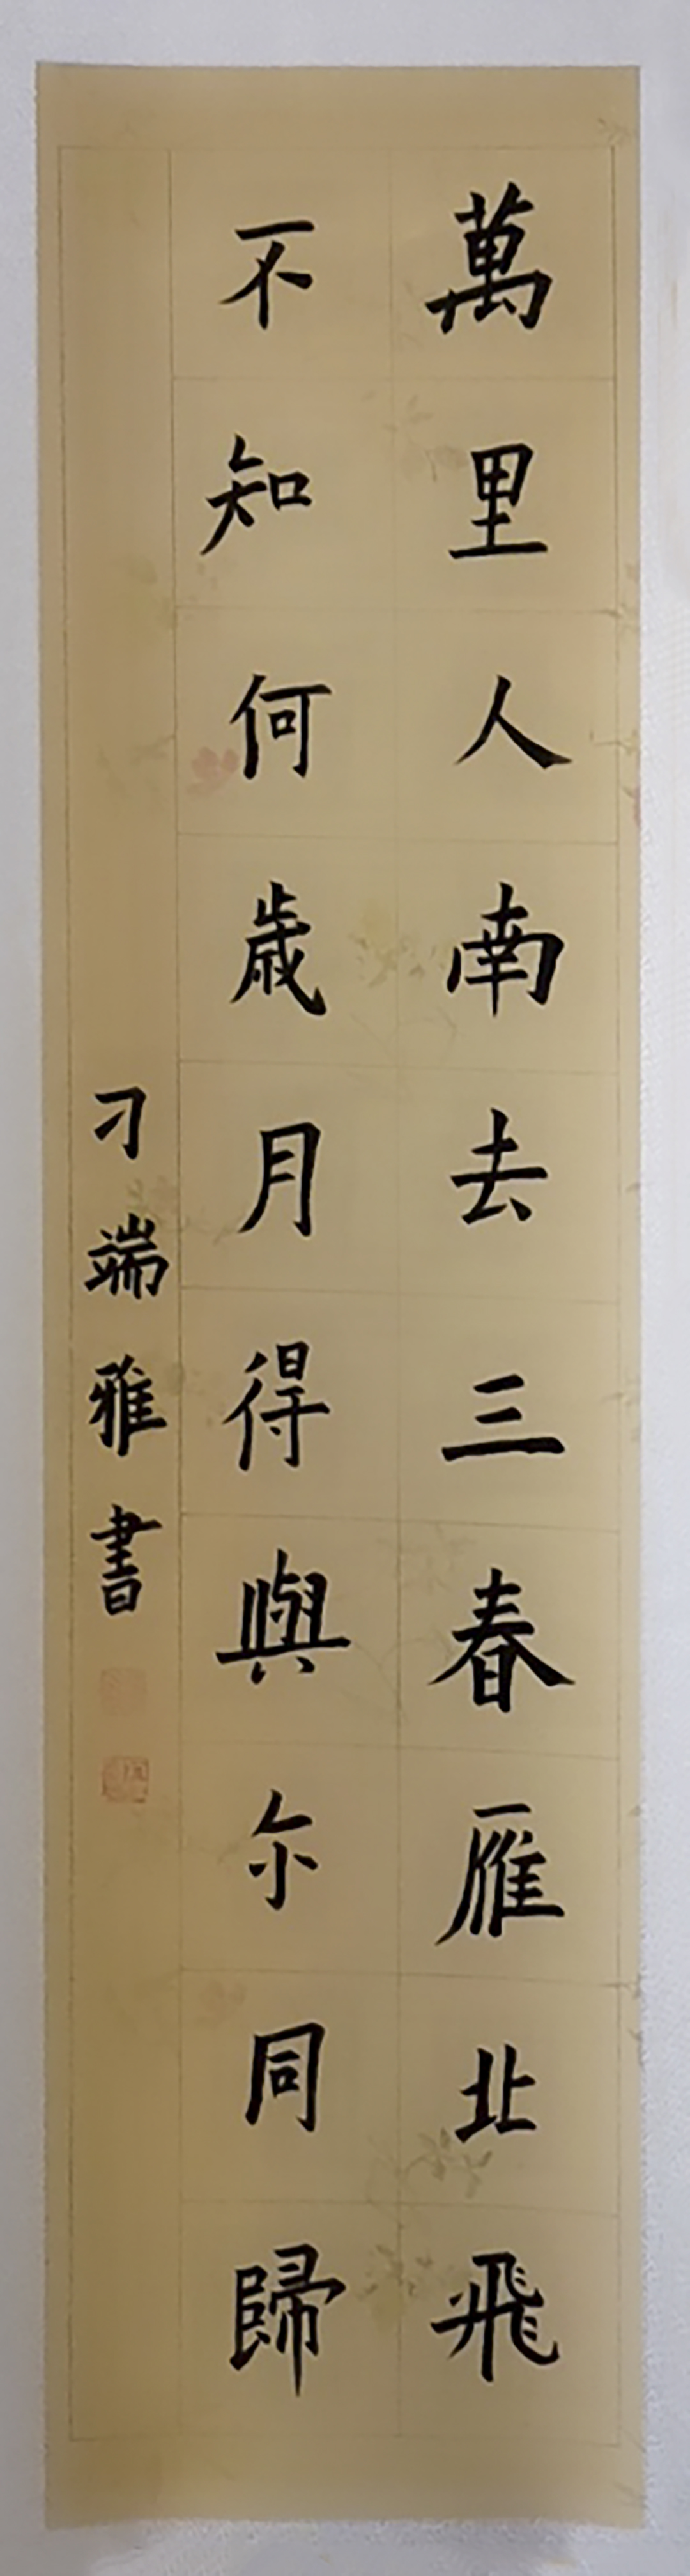 萬里人南去三春雁北飛
不知何歳月得與尔同歸
刁端雅書